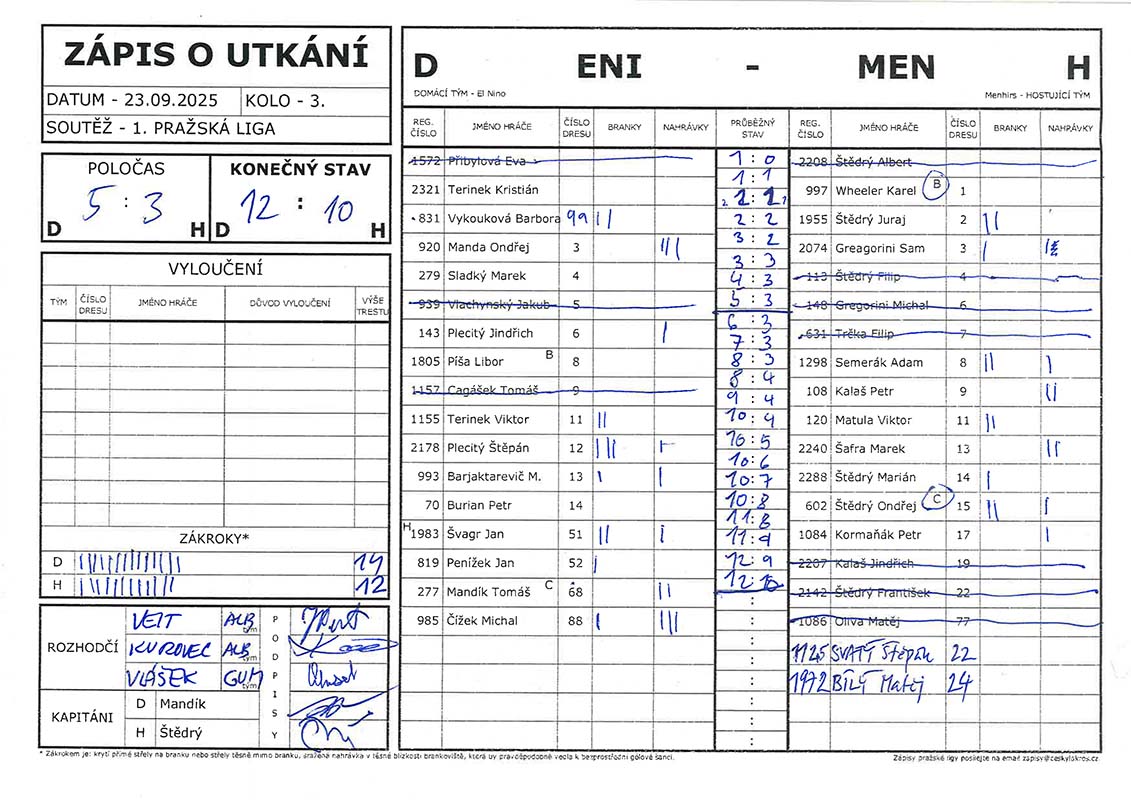 ZÁPIS O UTKÁNÍ
DATUM - 23.09.2025 KOLO - 3.
SOUTĚŽ - 1. PRAŽSKÁ LIGA
POLOČAS
5 : 3
D H
KONEČNÝ STAV
12 : 10
D H
VYLOUČENÍ
TÝM ČÍSLO DRESU JMÉNO HRÁČE DŮVOD VYLOUČENÍ VÝŠE TRESTU
ZÁKROKY*
D 14
H 12
ROZHODČÍ VEIT ALB tým
KUROVEC ALB tým
VLÁŠEK GUM tým
PODPISY
KAPITÁNI D Mandík
H Štědrý
D ENI - MEN H
DOMÁCÍ TÝM - El Nino Menhirs - HOSTUJÍCÍ TÝM
REG. ČÍSLO JMÉNO HRÁČE ČÍSLO DRESU BRANKY NAHRÁVKY PRŮBĚŽNÝ STAV REG. ČÍSLO JMÉNO HRÁČE ČÍSLO DRESU BRANKY NAHRÁVKY
1572 Přibylová Eva 1:0 2208 Štědrý Albert
2321 Terinek Kristián 1:1 997 Wheeler Karel B 1
831 Vykouková Barbora 99 || 2:1 1955 Štědrý Juraj 2 ||
920 Manda Ondřej 3 ||| 2:2 2074 Greagorini Sam 3 |
279 Sladký Marek 4 3:2 113 Štědrý Filip 4
939 Vlachynský Jakub 5 3:3 148 Gregorini Michal 6
143 Plecitý Jindřich 6 | 4:3 631 Trčka Filip 7
1805 Píša Libor B 8 5:3 1298 Semerák Adam 8 || |
1157 Cagášek Tomáš 9 6:3 108 Kalaš Petr 9 ||
1155 Terinek Viktor 11 || 7:3 120 Matula Viktor 11 ||
2178 Plecitý Štěpán 12 ||| | 8:3 2240 Šafra Marek 13 ||
993 Barjaktarevič M. 13 | | 8:4 2288 Štědrý Marián 14 |
70 Burian Petr 14 9:4 602 Štědrý Ondřej C 15 || |
H 1983 Švagr Jan 51 || | 10:4 1084 Kormaňák Petr 17 |
819 Penížek Jan 52 | 10:5 2207 Kalaš Jindřich 19
277 Mandík Tomáš C 68 || 10:6 2142 Štědrý František 22
985 Čížek Michal 88 | ||| 10:7 1086 Oliva Matěj 77
10:8 1125 SVATÝ Štěpán 22
11:8 1972 BÍLÝ Matěj 24
11:9
12:9
12:10
* Zákrokem je: krytí přímé střely na branku nebo střely těsně mimo branku, sražená nahrávka v těsné blízkosti brankoviště, která by pravděpodobně vedla k bezprostřední gólové šanci.
Zápisy pražské ligy posílejte na email zapisy@ceskylakros.cz